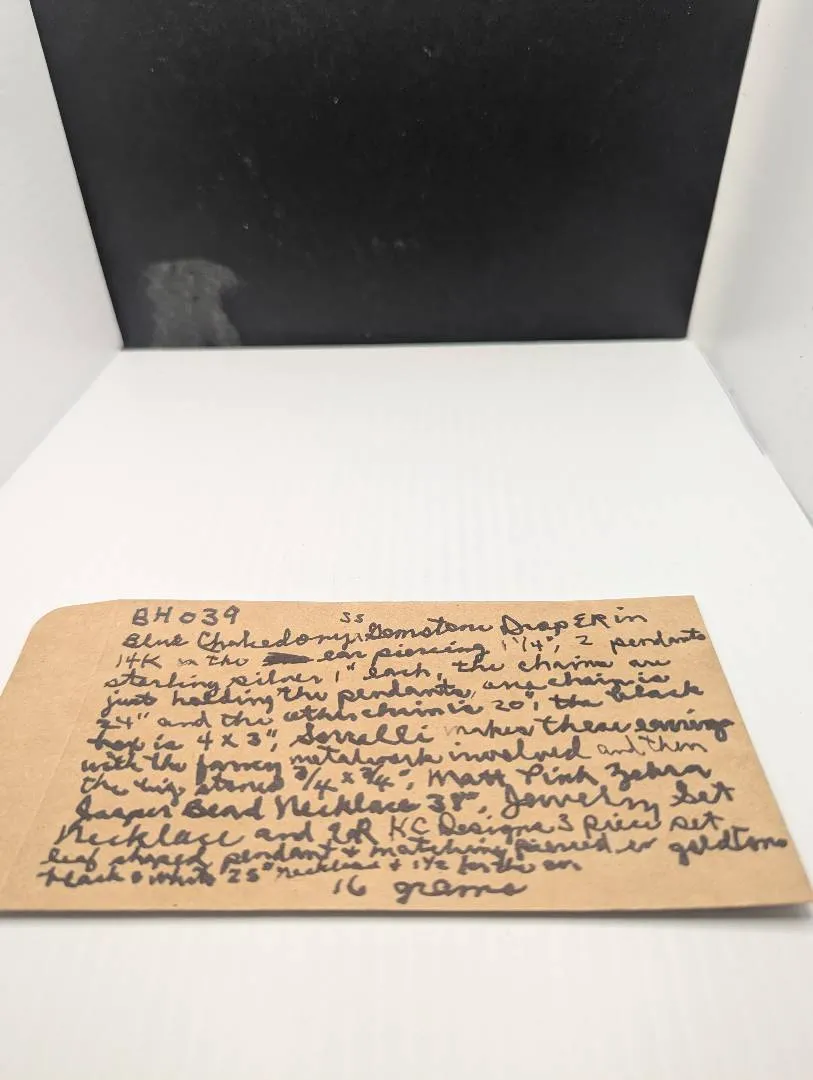 BH039
ss
Blue Chalcedony Gemstone Drop ER in
14K in the ear piercing 1 1/4", 2 pendants
sterling silver 1" each, the chains are
just holding the pendants, one chain is
24" and the other chain is 20", the black
box is 4 x 3", Sorrelli makes these earrings
with the fancy metalwork involved and then
the big stones 3/4 x 3/4", Matt Pink Zebra
Jasper Bead Necklace 38", Jewelry Set
Necklace and ER KC Designs 3 piece set
leaf shaped pendant + matching pierced er goldtone
black & white 25" necklace + 1 1/2 for the er
16 grams